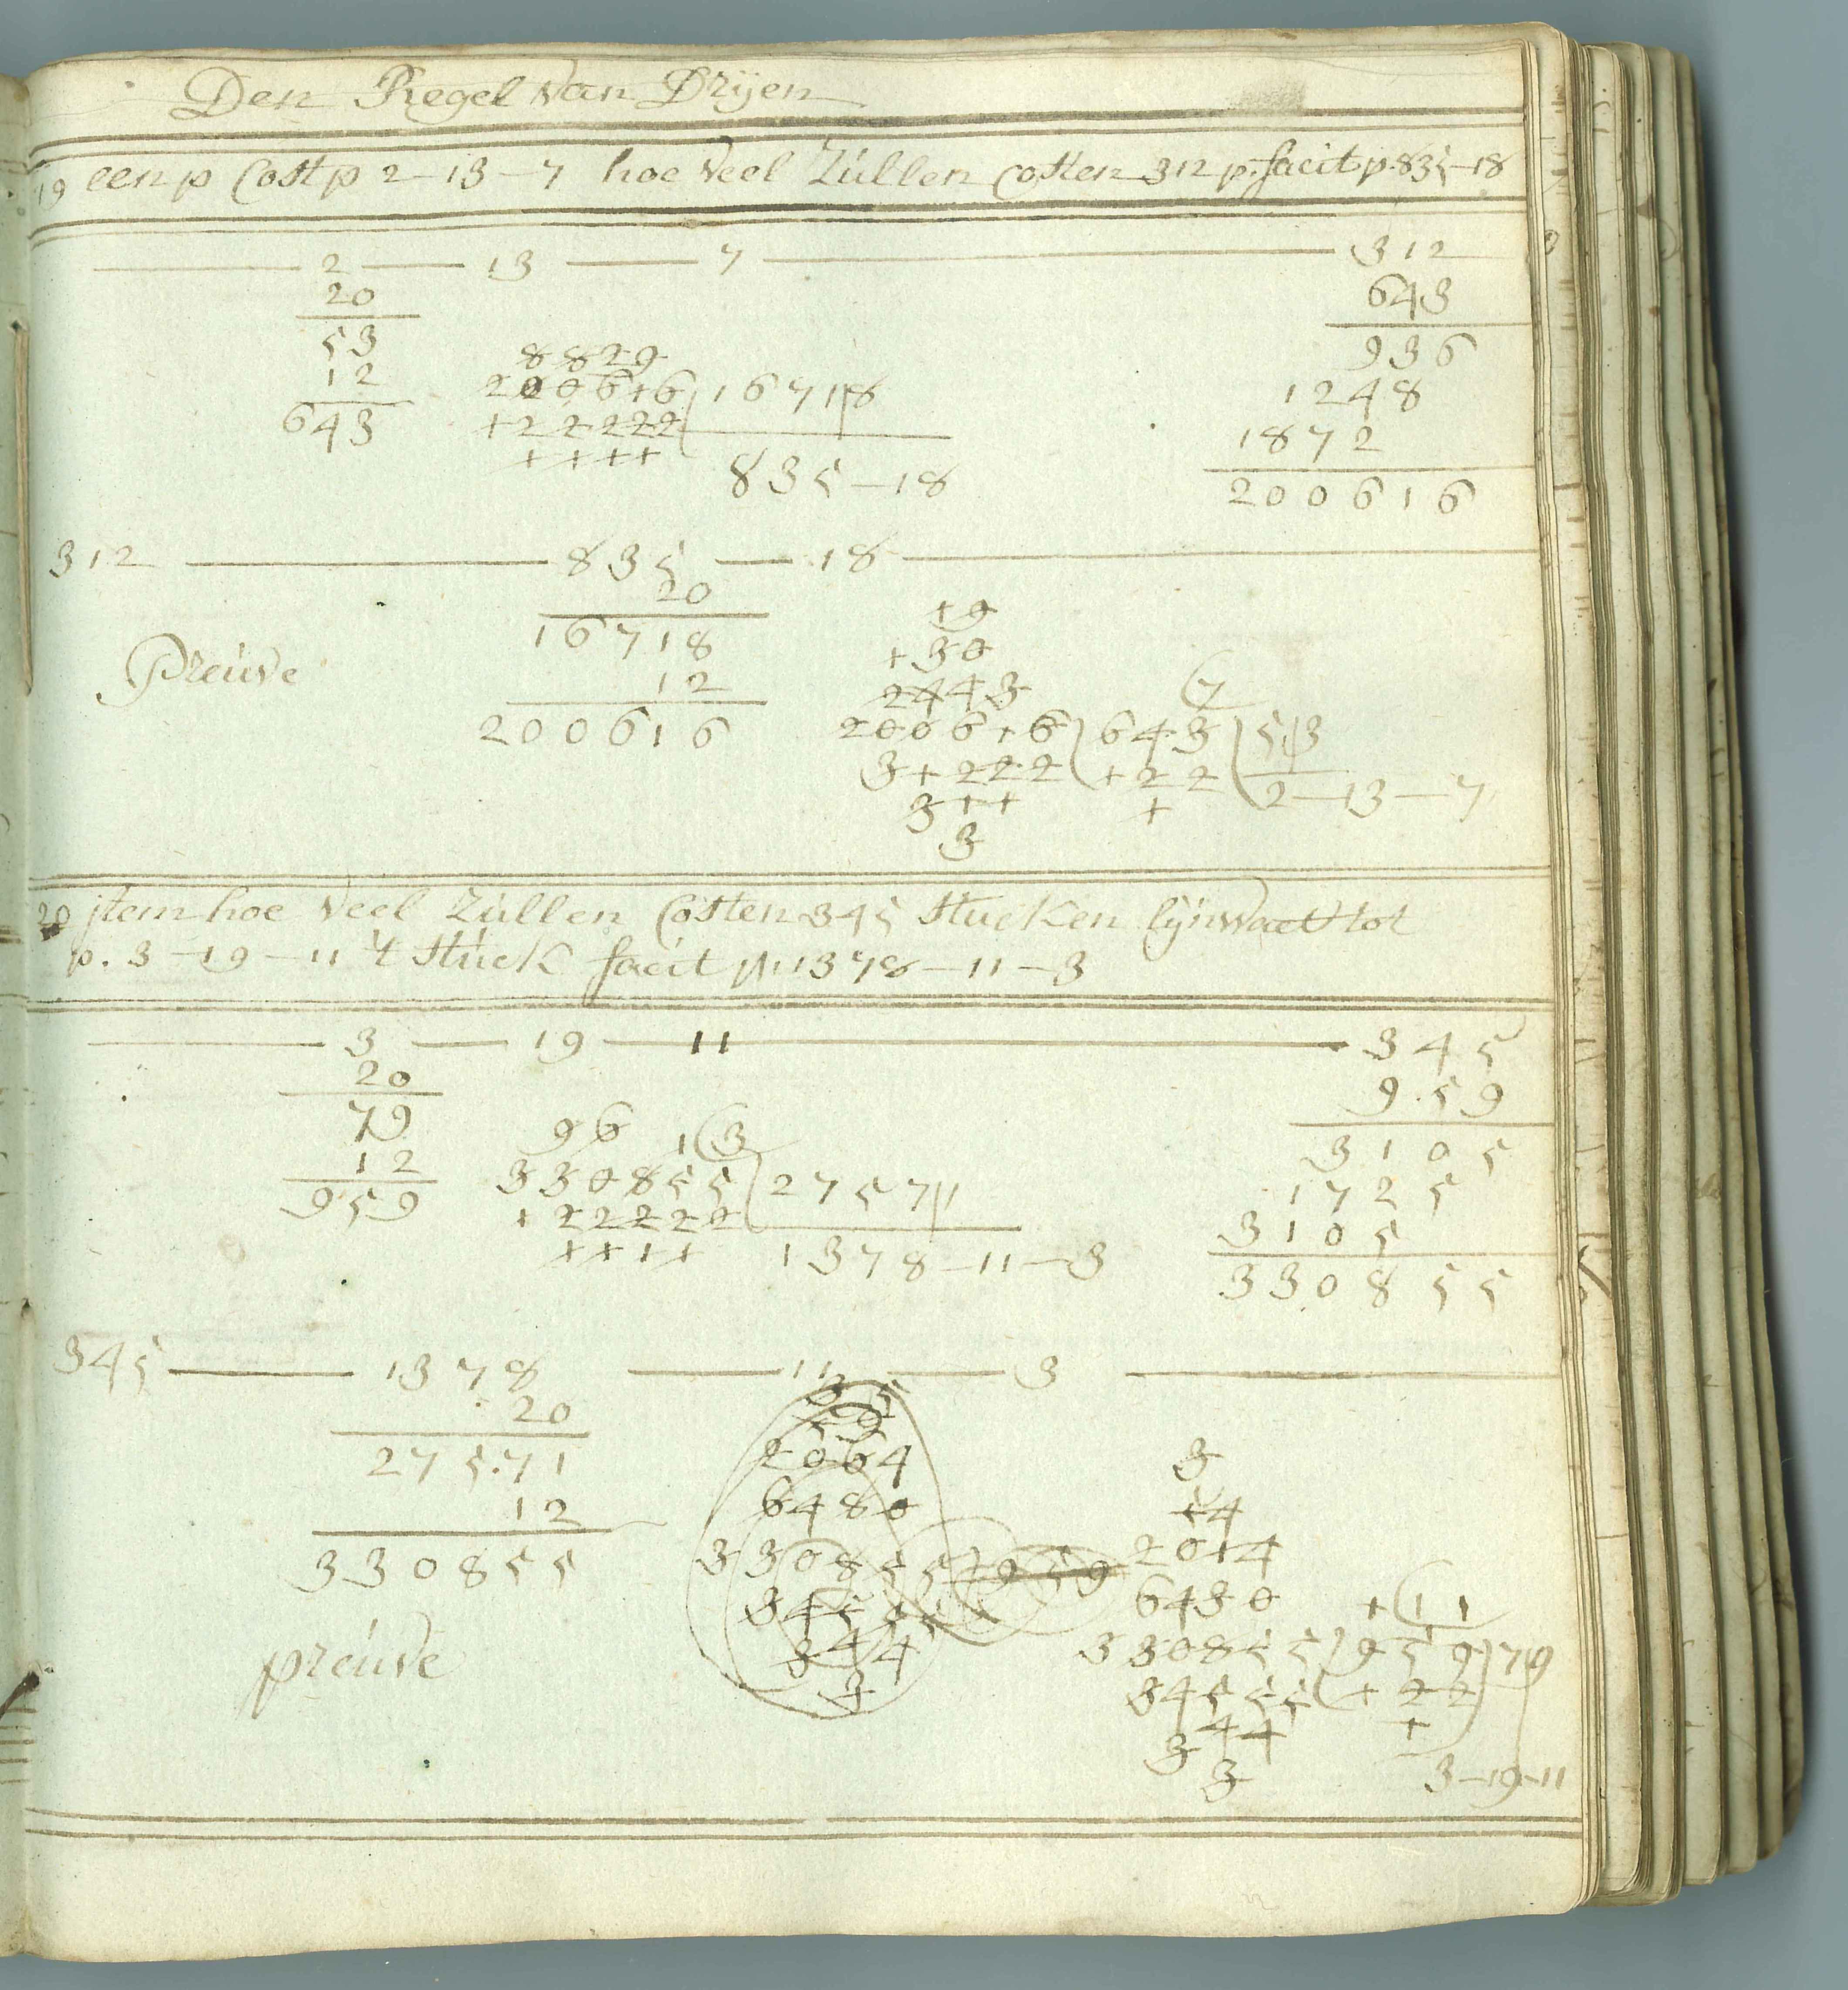 Den Regel van Drijen
19 een p Cost p 2-13-7 hoe veel Zúllen Costen 312 p. facit p. 835-18
2 — 13 — 7 — 312
20
53
12
643
8829
200616 ) 16718
122222
1111
835-18
643
936
1248
1872
200616
312 — 835 — 18
20
16718
12
200616
Preúve
19
130
2443
200616 ) 643 ) 53
31222
122
311
1
3
(7
2-13-7
20 jtem hoe veel Zúllen Costen 345 stucken lijnwaet tot
p. 3-19-11 't stúck facit p. 1378-11-3
3 — 19 — 11 — 345
20
79
12
959
96 1(3
330855 ) 27571
122222
1111
1378-11-3
959
3105
1725
3105
330855
345 — 1378 — 11 — 3
20
27571
12
330855
preúve
2064
6480
330855 ) 959
3
14
2014
6430
330855 ) 959 ) 79
34555
122
344
1
3
1(11
3-19-11